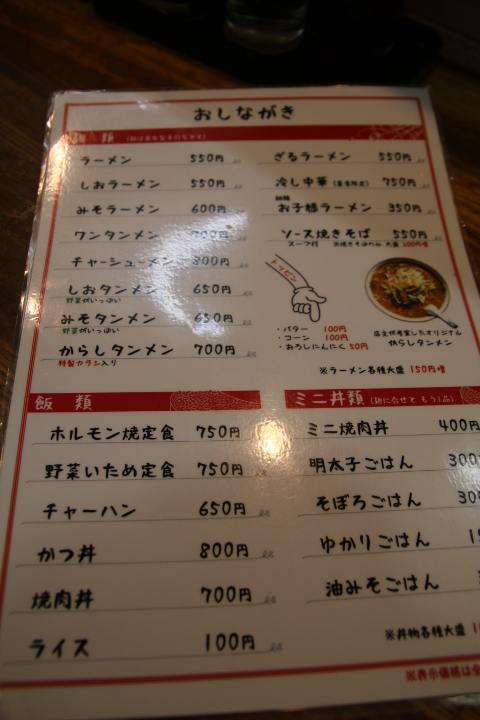 おしながき
麺類
ラーメン 550円
しおラーメン 550円
みそラーメン 600円
ワンタンメン 700円
チャーシューメン 800円
しおタンメン 650円
野菜がいっぱい
みそタンメン 650円
野菜がいっぱい
からしタンメン 700円
特製カラシ入り
ざるラーメン 550円
冷し中華(夏季限定) 750円
お子様ラーメン 350円
ソース焼きそば 550円
スープ付 ※焼きそばのみ 大盛 100円増
トッピング
・バター 100円
・コーン 100円
・おろしにんにく 50円
店主が考案したオリジナル
からしタンメン
※ラーメン各種大盛 150円増
飯類
ホルモン焼定食 750円
野菜いため定食 750円
チャーハン 650円
かつ丼 800円
焼肉丼 700円
ライス 100円
ミニ丼類(麺に合せて もう1品)
ミニ焼肉丼 400円
明太子ごはん 300
そぼろごはん 30
ゆかりごはん
油みそごはん
※丼物各種大盛
※表示価格は